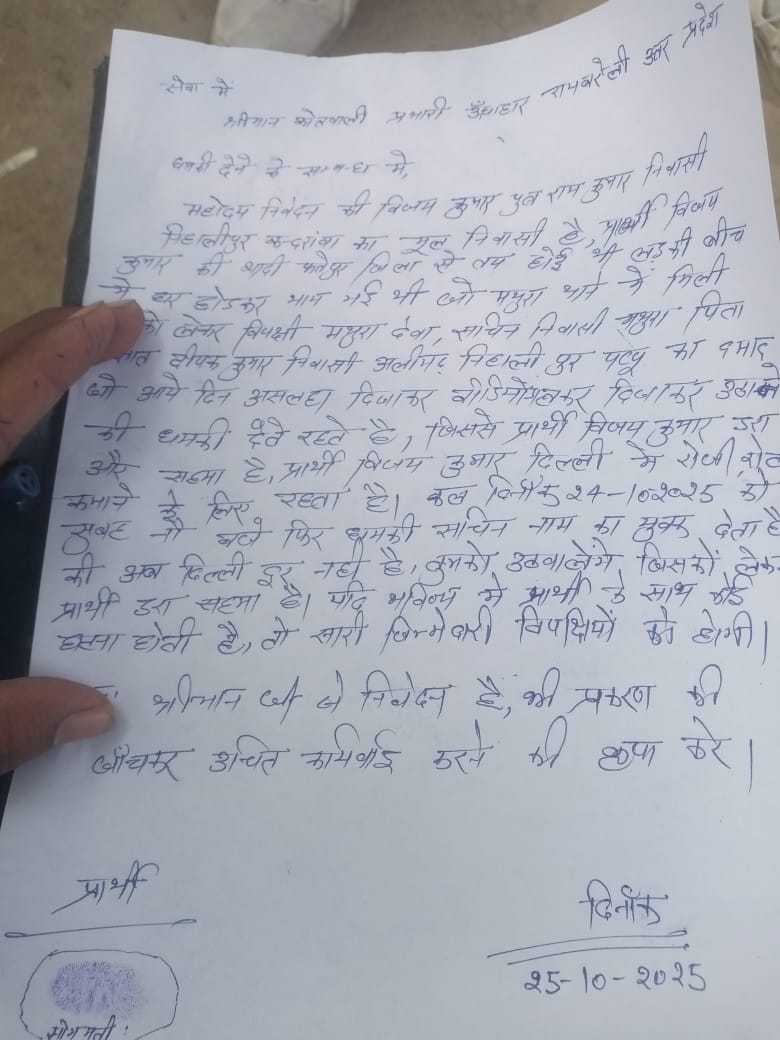 सेवा में
श्रीमान कोतवाली प्रभारी ऊँचाहार रायबरेली उत्तर प्रदेश
धमकी देने के सम्बन्ध में,
महोदय निवेदन की विजय कुमार पुत्र राम कुमार निवासी
निहालीपुर कन्दरांवा का मूल निवासी है, प्रार्थी विजय
कुमार की शादी फतेपुर जिला से तय होई थी लड़की बीच
में घर छोडकर भाग गई थी जो मथुरा थाने में मिली
को लेकर विपक्षी मथुरा देवा, सचिन निवासी मथुरा पिता
दीपक कुमार निवासी निहाली पुर पप्पू का दमाद
जो आये दिन असलहा दिखाकर दिखाकर उठाने
की धमकी देते रहते है, जिससे प्रार्थी विजय कुमार डरा
और सहमा है, प्रार्थी विजय कुमार दिल्ली में रोजी रोटी
कमाने के लिए रहता है। कल दिनाँक 24-10-2025 को
सुबह नौ बजे फिर धमकी सचिन नाम का युवक देता है
की अब दिल्ली दूर नही है, तुमको उठवालेंगे, जिसको लेकर
प्रार्थी डरा सहमा है। यदि भविष्य में प्रार्थी के साथ कोई
घटना होती है, तो सारी जिम्मेदारी विपक्षियों की होगी।
श्रीमान जी से निवेदन है, की प्रकरण की
जाँचकर उचित कार्यवाई करने की कृपा करे।
प्रार्थी
दिनाँक
25-10-2025